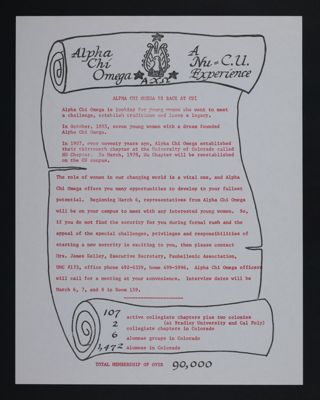 Alpha Chi Omega
A Nu-C.U. Experience
ΑΧΩ
ALPHA CHI OMEGA IS BACK AT CU!
Alpha Chi Omega is looking for young women who want to meet
a challenge, establish traditions and leave a legacy.
In October, 1885, seven young women with a dream founded
Alpha Chi Omega.
In 1907, over seventy years ago, Alpha Chi Omega established
their thirteenth chapter at the University of Colorado called
NU Chapter. In March, 1978, Nu Chapter will be reestablished
on the CU campus.
The role of women in our changing world is a vital one, and Alpha
Chi Omega offers you many opportunities to develop to your fullest
potential. Beginning March 6, representatives from Alpha Chi Omega
will be on your campus to meet with any interested young women. So,
if you do not find the sorority for you during formal rush and the
appeal of the special challenges, privileges and responsibilities of
starting a new sorority is exciting to you, then please contact
Mrs. James Kelley, Executive Secretary, Panhellenic Association,
UMC #173, office phone 492-6359, home 499-5996. Alpha Chi Omega officers
will call for a meeting at your convenience. Interview dates will be
March 6, 7, and 8 in Room 159.
107 active collegiate chapters plus two colonies
(at Bradley University and Cal Poly)
2 collegiate chapters in Colorado
6 alumnae groups in Colorado
1,472 Alumnae in Colorado
TOTAL MEMBERSHIP OF OVER 90,000